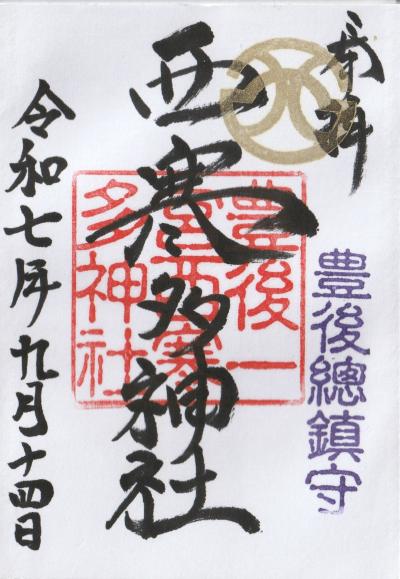 奉拝
豊後總鎮守
西寒多神社
豊後一
宮西寒
多神社
令和七年九月十四日